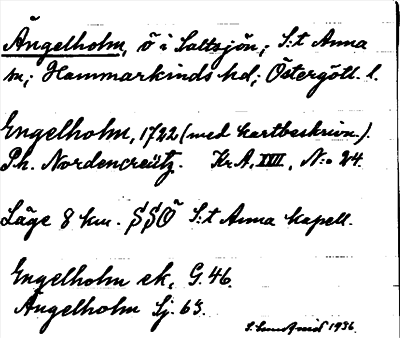 Ängelholm, ö i Saltsjön; S:t Anna
sn; Hammarkinds hd; Östergötl. l.
Engelholm, 1722 (med kartbeskrivn.).
Ph. Nordencreütz. Kr.A. XVII, N:o 24.
Läge 8 km. SSÖ S:t Anna kapell.
Engelholm ek. G.46.
Ängelholm Sj. 63.
1936.